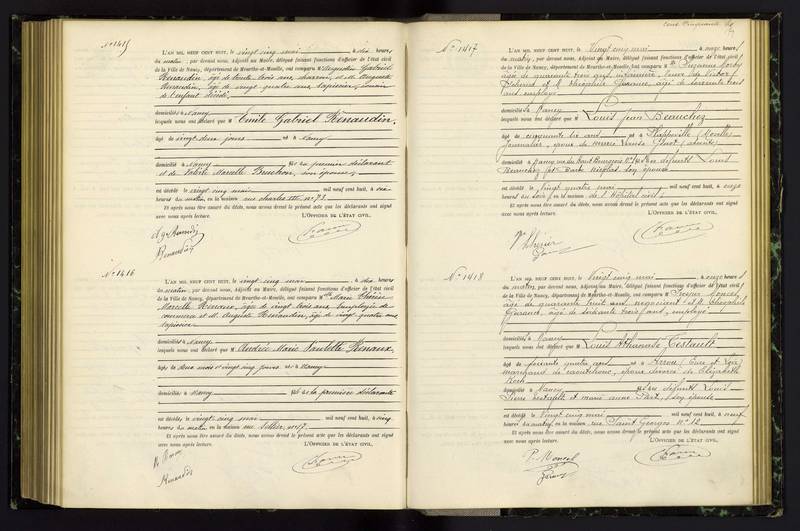 N° 1415
L'AN MIL NEUF CENT HUIT, le vingt cinq mai, à dix heures
du matin, par devant nous, Adjoint au Maire, délégué faisant fonctions d'officier de l'état civil
de la Ville de Nancy, département de Meurthe-et-Moselle, ont comparu M Augustin Gabriel
Renaudin, âgé de trente trois ans, charron, et M. Auguste
Renaudin, âgé de vingt quatre ans, tapissier, cousin
de l'enfant décédé,
domiciliés à Nancy
lesquels nous ont déclaré que M Emile Gabriel Renaudin,
âgé de vingt deux jours né à Nancy
domicilié à Nancy fils du premier déclarant
et de Valérie Marcelle, son épouse
est décédé le vingt cinq mai mil neuf cent huit, à six
heures du matin, en la maison rue Charles III, n° 73.
Et après nous être assuré du décès, nous avons dressé le présent acte que les déclarants ont signé
avec nous après lecture. L'OFFICIER DE L'ÉTAT CIVIL,
Renaudin
N° 1416
L'AN MIL NEUF CENT HUIT, le vingt cinq mai, à dix heures
du matin, par devant nous, Adjoint au Maire, délégué faisant fonctions d'officier de l'état civil
de la Ville de Nancy, département de Meurthe-et-Moselle, ont comparu Mlle Marie Thérèse
Marcelle Renaux, âgée de vingt trois ans, employée de
commerce et M. Auguste Renaudin, âgé de vingt quatre ans
tapissier
domiciliés à Nancy
lesquels nous ont déclaré que M Andrée Marie Paulette Renaux,
âgée de deux mois et vingt cinq jours née à Nancy
domiciliée à Nancy fille de la première déclarante
est décédée le vingt cinq mai mil neuf cent huit, à cinq
heures du matin en la maison rue Sellier, n° 17.
Et après nous être assuré du décès, nous avons dressé le présent acte que les déclarants ont signé
avec nous après lecture. L'OFFICIER DE L'ÉTAT CIVIL,
Renaudin
N° 1417
L'AN MIL NEUF CENT HUIT, le Vingt cinq mai, à onze heures
du matin, par devant nous, Adjoint au Maire, délégué faisant fonctions d'officier de l'état civil
de la Ville de Nancy, département de Meurthe-et-Moselle, ont comparu Me Suzanne
âgée de quarante trois ans, infirmière, veuve de Victor
et M. Théophile Gérard, âgé de soixante trois
ans, employé
domiciliés à Nancy
lesquels nous ont déclaré que M Louis Jean Beauchez
âgé de cinquante six ans né à Plappeville (Moselle)
Journalier, époux de Marie Louise
domicilié à Nancy, rue du haut Bourgeois fils de défunts Louis
Beauchez et Barbe Nicolas, son épouse
est décédé le Vingt quatre mai mil neuf cent huit, à onze
heures du soir, en la maison de l'Hôpital civil
Et après nous être assuré du décès, nous avons dressé le présent acte que les déclarants ont signé
avec nous après lecture. L'OFFICIER DE L'ÉTAT CIVIL,
N° 1418
L'AN MIL NEUF CENT HUIT, le Vingt cinq mai, à onze heures
du matin, par devant nous, Adjoint au Maire, délégué faisant fonctions d'officier de l'état civil
de la Ville de Nancy, département de Meurthe-et-Moselle, ont comparu M Prosper Moncel,
âgé de quarante huit ans, négociant et M. Théophile
Gérard, âgé de soixante trois ans, employé
domiciliés à Nancy
lesquels nous ont déclaré que M Louis Athanase Testault
âgé de soixante quatre ans né à Arrou (Eure et Loir)
marchand de caoutchouc, époux divorcé de Elizabeth
Koch
domicilié à Nancy fils de défunts Louis
Pierre Testault et Marie Anne, son épouse
est décédé le Vingt cinq mai mil neuf cent huit, à neuf
heures du matin, en la maison rue Saint Georges N° 12
Et après nous être assuré du décès, nous avons dressé le présent acte que les déclarants ont signé
avec nous après lecture. L'OFFICIER DE L'ÉTAT CIVIL,
P. Moncel